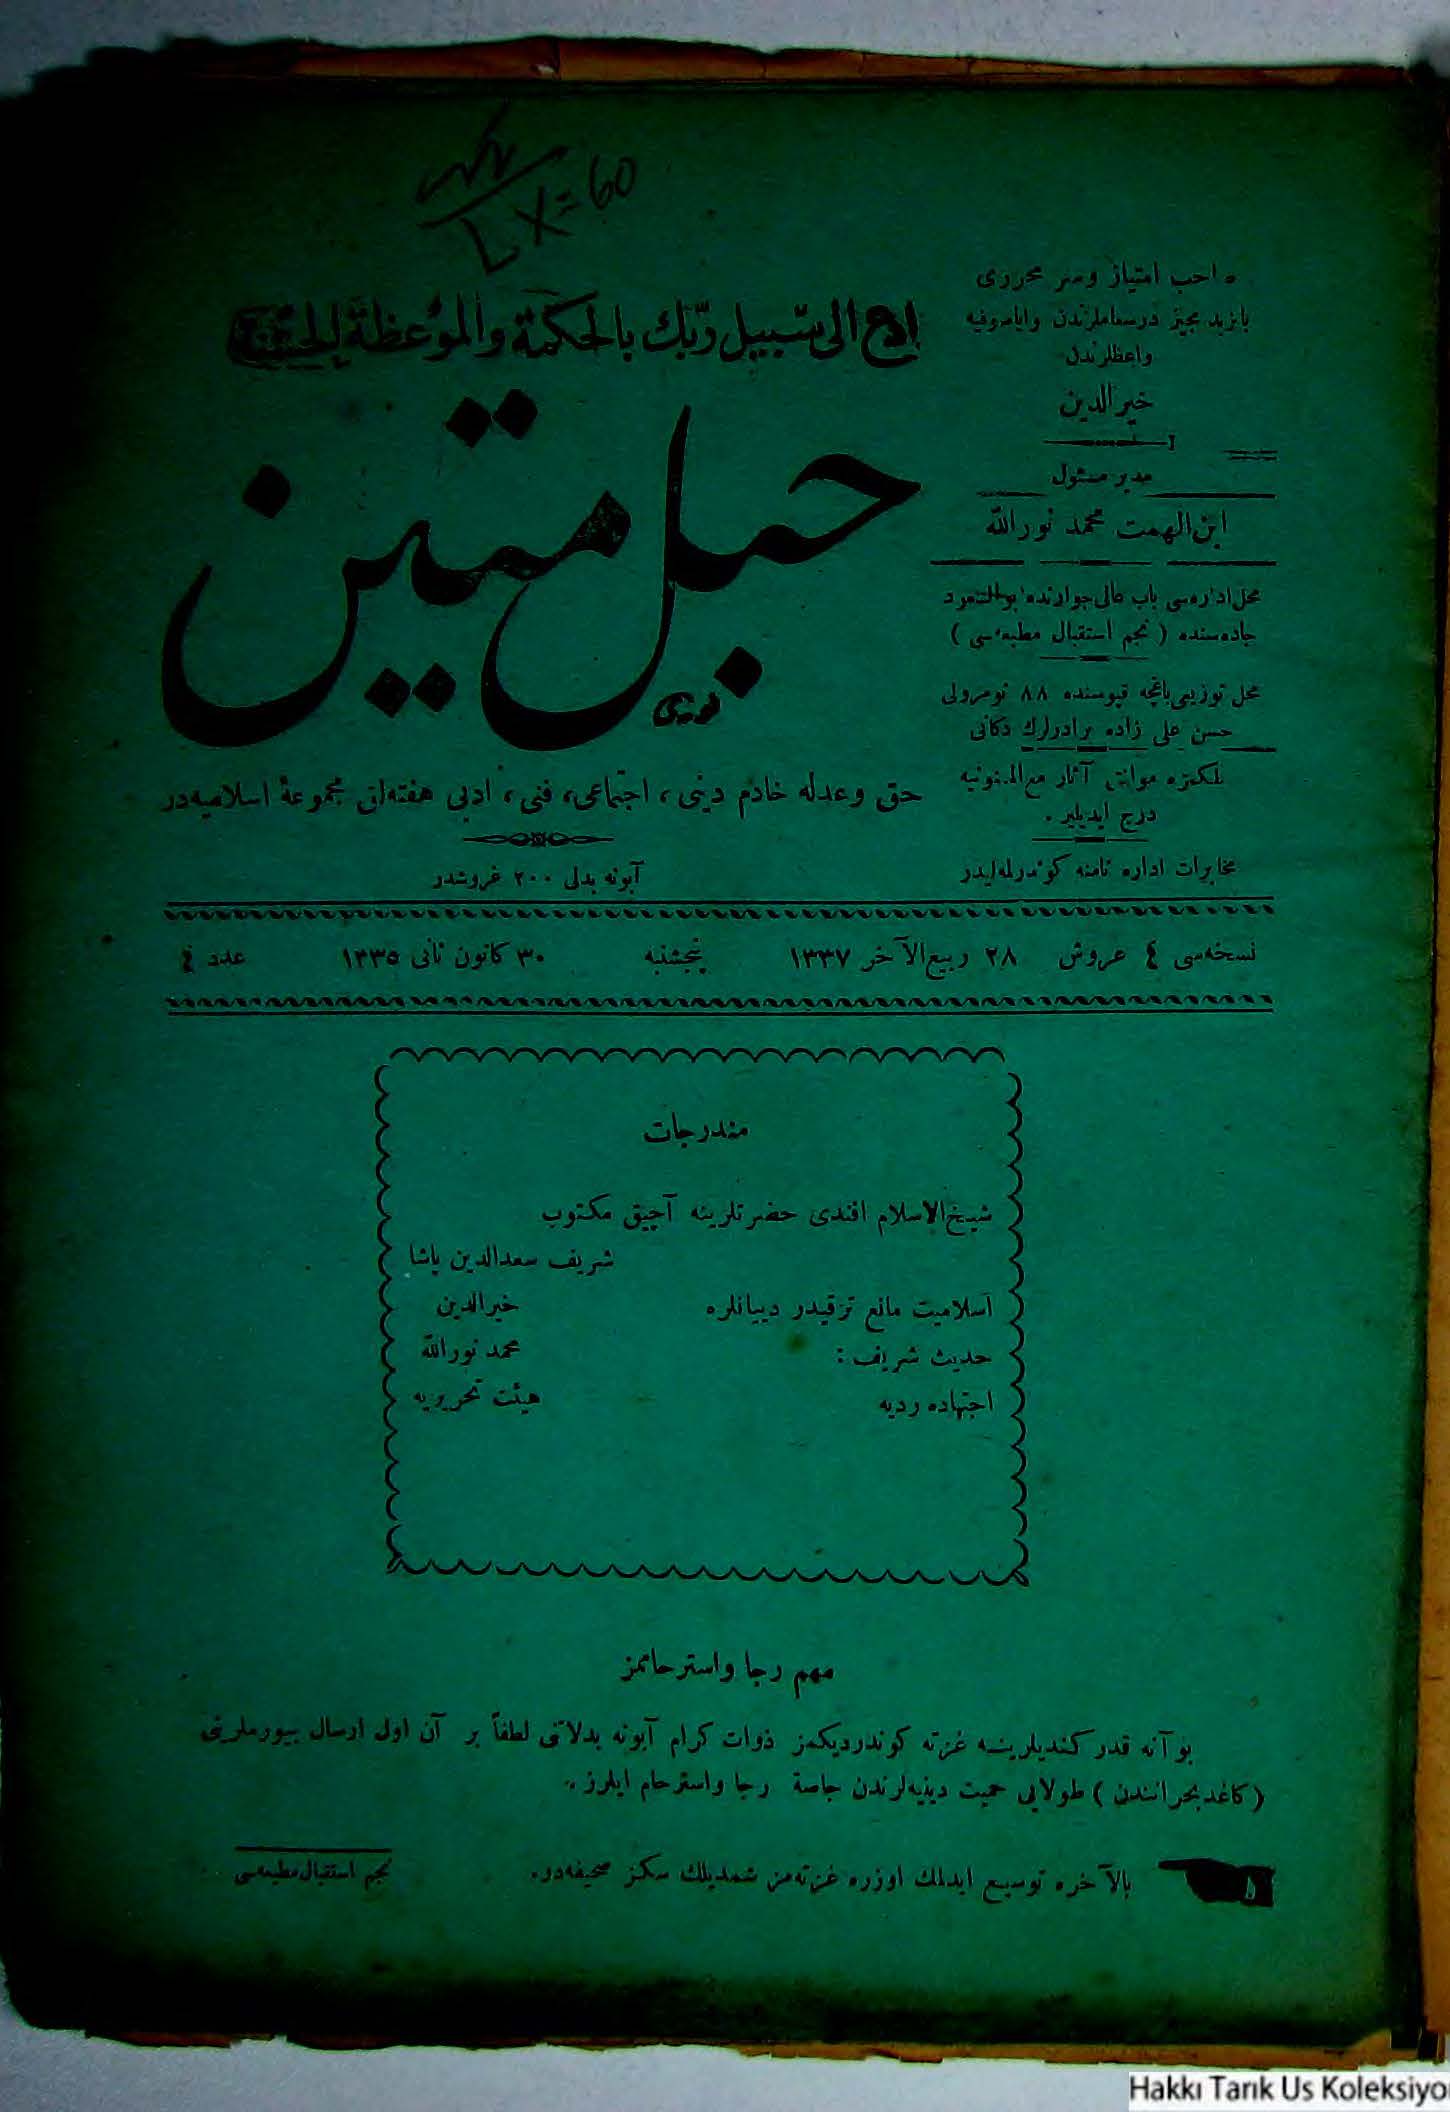 ادع الى سبيل ربك بالحكمة والموعظة الحسنة
حبل متين
حق وعدله خادم دينى، اجتماعى، فنى، ادبى هفته‌لق مجموعهٔ اسلاميه‌در
آبونه بدلى ٢٠٠ غروشدر
صاحب امتياز وسر محررى
بايزيد مجيز درسعاملرندن واياصوفيه
واعظلرندن
خيرالدين
مدير مسئول
ابن الهمت محمد نورالله
محل اداره‌سى باب عالى جوارنده ابوالسعود
جاده‌سنده ( نجم استقبال مطبعه‌سى )
محل توزيعى باغچه قپوسنده ٨٨ نومرولى
حسن على زاده برادرلرك دكانى
مسلكمزه موافق آثار مع الممنونيه
درج ايديلير .
مخابرات اداره نامنه كوندرلمه‌ليدر
نسخه‌سى ٤ غروش ٢٨ ربيع الآخر ١٣٣٧ پنجشنبه ٣٠ كانون ثانى ١٣٣٥ عدد ٤
مندرجات
شيخ الاسلام افندى حضرتلرينه آچيق مكتوب
شريف سعدالدين پاشا
اسلاميت مانع ترقيدر دييانلره خيرالدين
حديث شريف : محمد نورالله
اجتهاده رديه هيئت تحريريه
مهم رجا واسترحاممز
بو آنه قدر كنديلرينه غزته كوندرديكمز ذوات كرام آبونه بدلاتنى لطفاً بر آن اول ارسال بيورملرينى
( كاغد بحرانندن ) طولايى حميت دينيه‌لرندن خاصةً رجا واسترحام ايلرز .
بالآخره توسيع ايدلمك اوزره غزته‌مز شمديلك سكز صحيفه‌در .
نجم استقبال مطبعه‌سى
L X = 60
Hakkı Tarık Us Koleksiyo